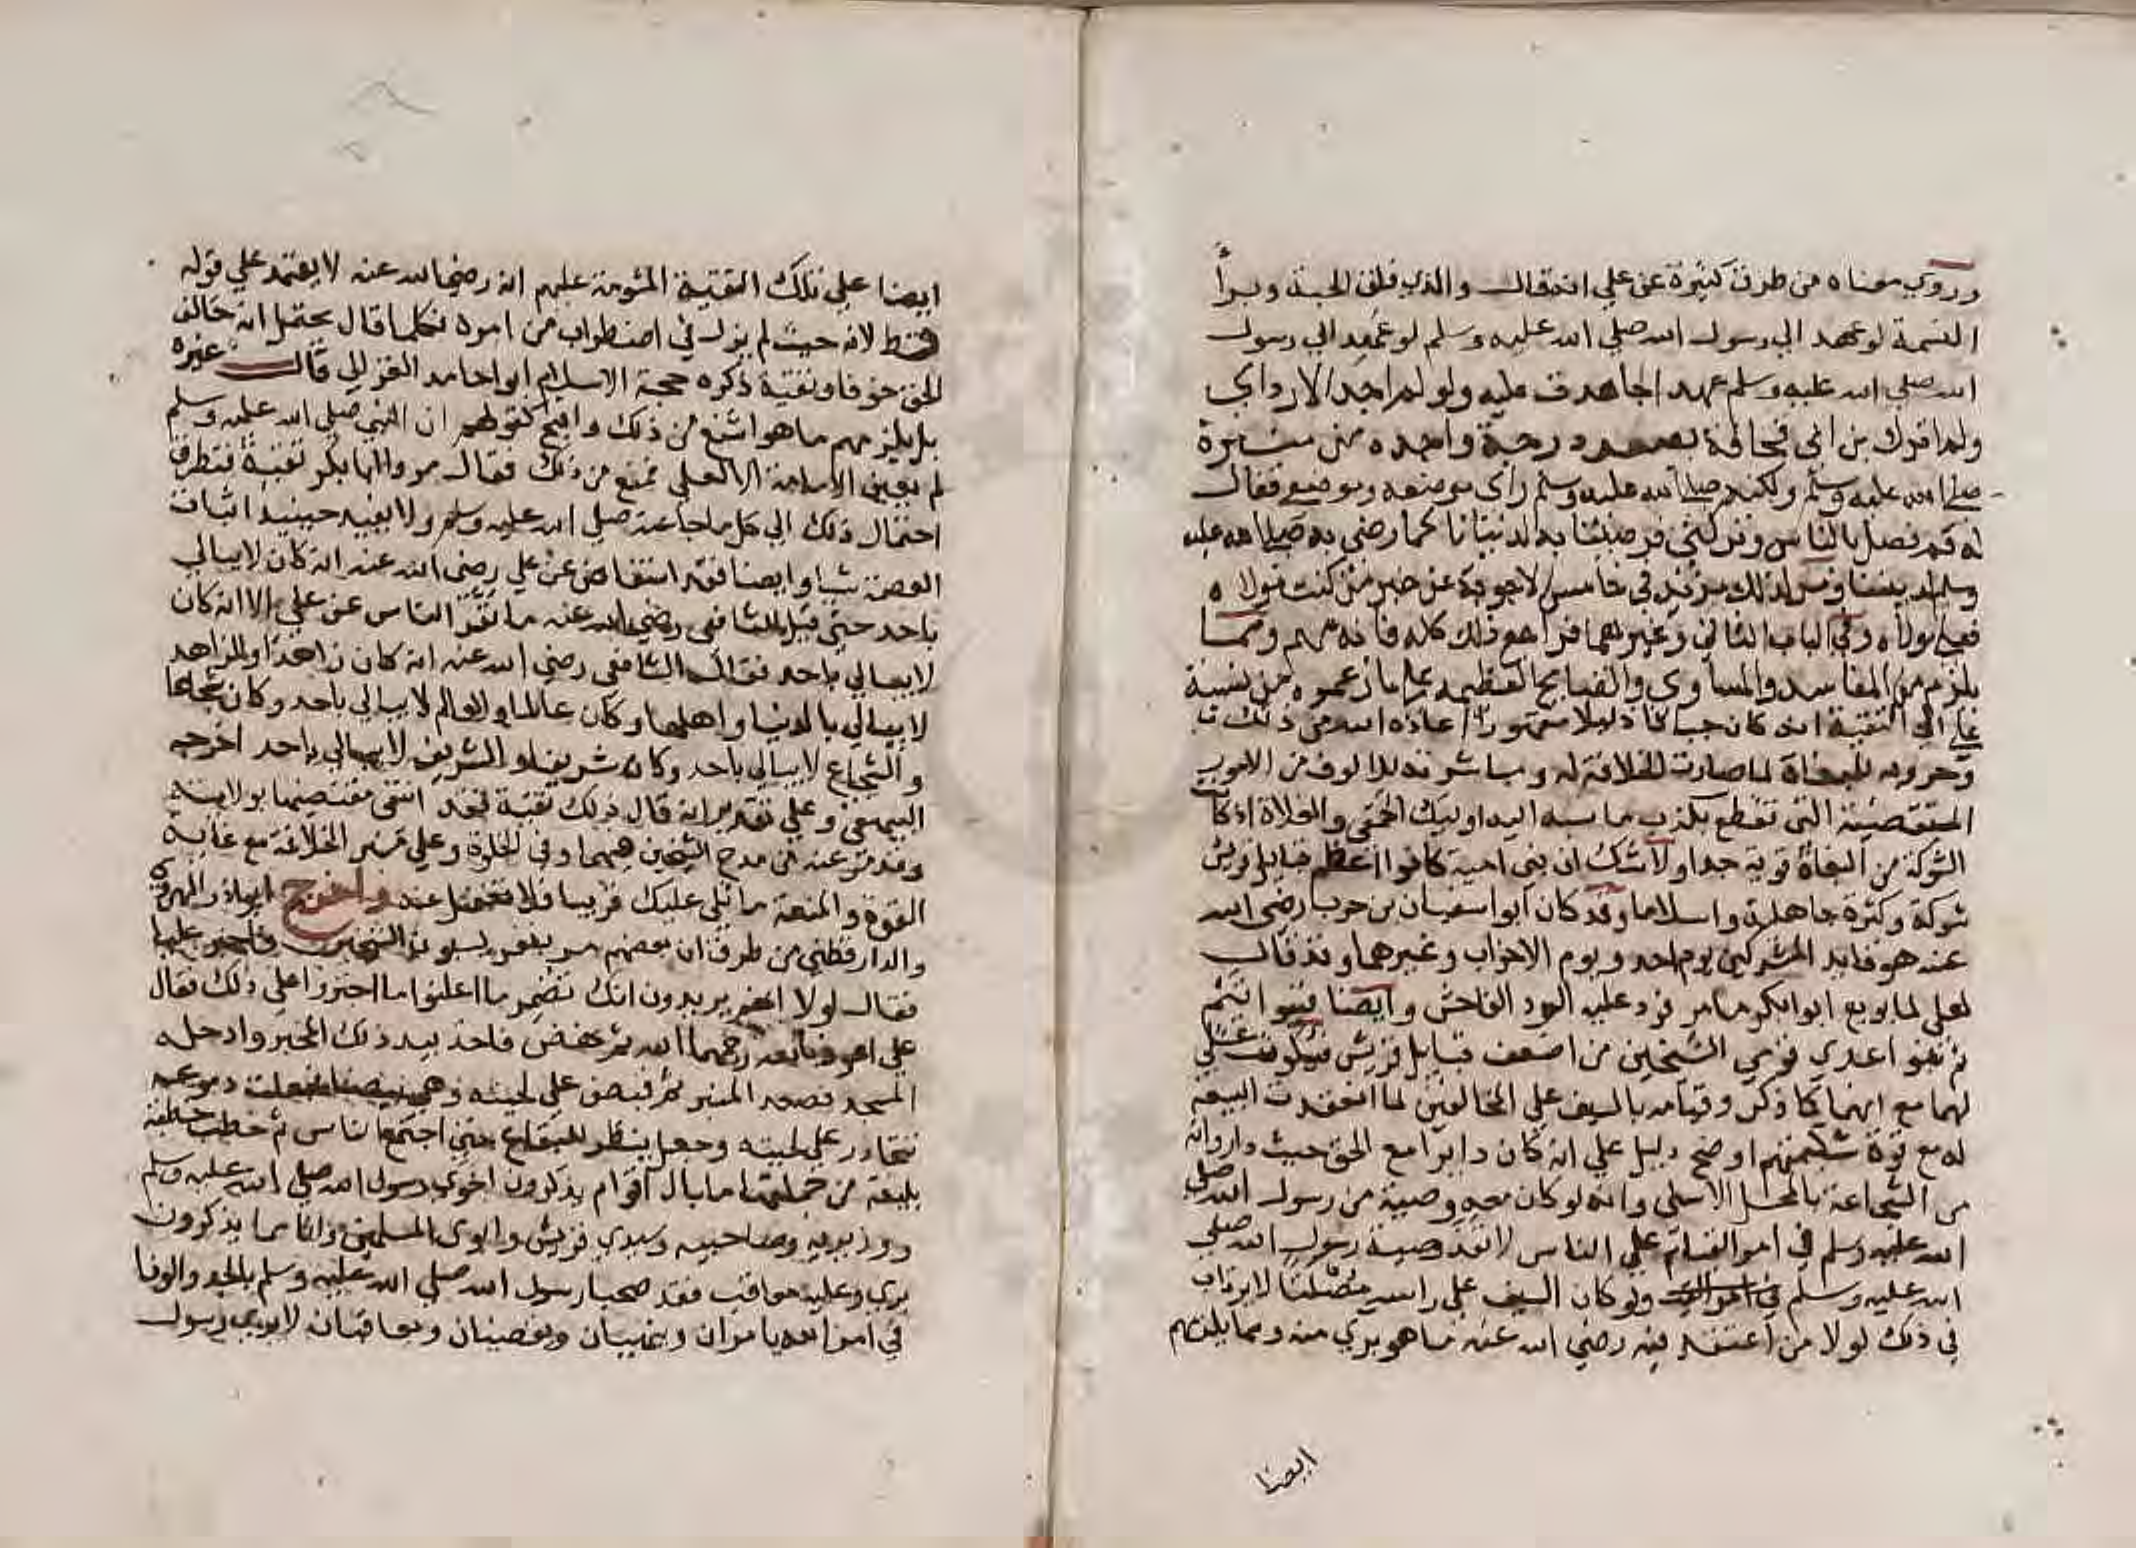 وروي معناه من طرق كثيرة عن علي انه قال والذي فلق الحبة وبرأ
النسمة لو عهد الي رسول الله صلي الله عليه وسلم لو عهد الي رسول
الله صلي الله عليه وسلم عهدا لجاهدت عليه ولو لم اجد الا رداي
ولم اترك بن ابي قحافة يصعد درجة واحدة من منبره
صلي الله عليه وسلم ولكنه صلي الله عليه وسلم راي موضعه وموضعي فقال
له قم فصل بالناس وتركني فرضينا به لدنيانا كما رضي به صلي الله عليه
وسلم لديننا ومر لذلك مزيد في خامس الاجوبة عن خبر من كنت مولاه
فعلي مولاه وفي الباب الثاني وغيرهما فراجع ذلك كله فانه مهم ومما
يلزم من المفاسد والمساوي والقبايح العظيمة علي ما زعموه من نسبة
علي الي التقية انه كان جبانا ذليلا مقهورا اعاذه الله من ذلك
وحروبه للبغاة لما صارت الخلافة له ومباشرته للالوف من الامور
المستفيضة التي تقطع بكذب ما نسبه اليه اوليك الحمقي والغلاة اذ كانت
الشوكة من البغاة قوية جدا ولا شك ان بني امية كانوا اعظم قبايل قريش
شوكة وكثرة جاهلية واسلاما وقد كان ابوا سفيان بن حرب رضي الله
عنه هو قايد المشركين يوم احد ويوم الاحزاب وغيرهما وقد قال
لعلي لما بويع ابوا بكر ما مر فرد عليه الرد الفاحش وايضا فبنوا تيم
ثم بنوا عدي قومي الشيخين من اضعف قبايل قريش فسكوت علي
لهما مع انهما كما ذكر وقيامه بالسيف علي المخالفين لما انعقدت البيعة
له مع قوة شكيمتهم اوضح دليل علي انه كان دايرا مع الحق حيث دار وانه
من الشجاعة بالمحل الاسلي وانه لو كان معه وصية من رسول الله صلي
الله عليه وسلم في امر القيام علي الناس لانفذ وصية رسول الله صلي
الله عليه وسلم ولو كان السيف علي راسه مصلتا لا يرتاب
في ذلك لولا من اعتقد فيه رضي الله عنه ما هو بري منه ومما يلزمهم
ايضا
ايضا علي تلك التقية المشومة عليهم انه رضي الله عنه لا يعتمد علي قوله
قط لانه حيث لم يزل في اضطراب من امره فكلما قال يحتمل انه خالف
الحق خوفا وتقية ذكره حجة الاسلام ابوا حامد الغزالي قال غيره
بل يلزمهم ما هو اشنع من ذلك واقبح كقولهم ان النبي صلي الله عليه وسلم
لم يعين الامامة الا لعلي فمنع من ذلك فقال مروا ابا بكر تقية فتطرق
احتمال ذلك الي كل ما جا عنه صلي الله عليه وسلم ولا يفيد حينيذ اثبات
العصمة شيا وايضا فقد استفاض عن علي رضي الله عنه انه كان لا يبالي
باحد حتي قيل للشافعي رضي الله عنه ما نفر الناس عن علي الا انه كان
لا يبالي باحد فقال الشافعي رضي الله عنه انه كان زاهدا والزاهد
لا يبالي بالدنيا واهلها وكان عالما والعالم لا يبالي باحد وكان شجاعا
والشجاع لا يبالي باحد وكان شريفا والشريف لا يبالي باحد اخرجه
البيهقي وعلي تقدير انه قال ذلك تقية فقد انتفي مقتضيها بولايته
وقد مر عنه من مدح الشيخين فيهما وفي الخلوة وعلي منبر الخلافة مع غاية
القوة والمنعة ما تلي عليك قريبا فلا تغفل عنه واخرج ابوا ذر الهروي
والدارقطني من طرق ان بعضهم مر بنفر يسبون الشيخين فاخبر عليا
فقال لولا انهم يريدون انك تضمر ما اعلنوا ما اجترؤا علي ذلك فقال
علي اعوذ بالله رحمهما الله ثم نهض فاخذ بيد ذلك المخبر وادخله
المسجد فصعد المنبر ثم قبض علي لحيته وهي بيضا فجعلت دموعه
تتحادر علي لحيته وجعل ينظر للبقاع حتي اجتمع الناس ثم خطب خطبة
بليغة من جملتها ما بال اقوام يذكرون اخوي رسول الله صلي الله عليه وسلم
ووزيريه وصاحبيه وسيدي قريش وابوي المسلمين وانا مما يذكرون
بري وعليه معاقب فقد صحبا رسول الله صلي الله عليه وسلم بالجد والوفا
في امر الله يامران وينهيان ويغضبان ويعاقبان لا يري رسول